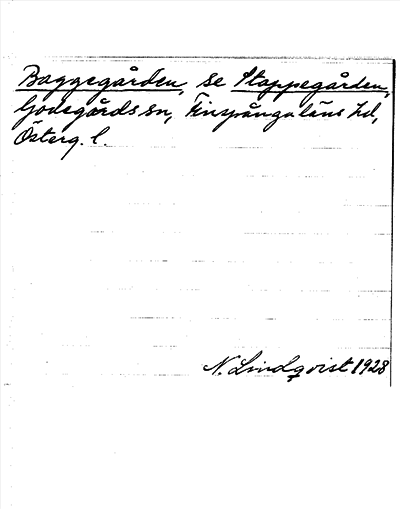 Baggegården, se Stappegården,
Godegårds sn, Finspånga läns hd,
Österg. l.
N. Lindqvist 1928